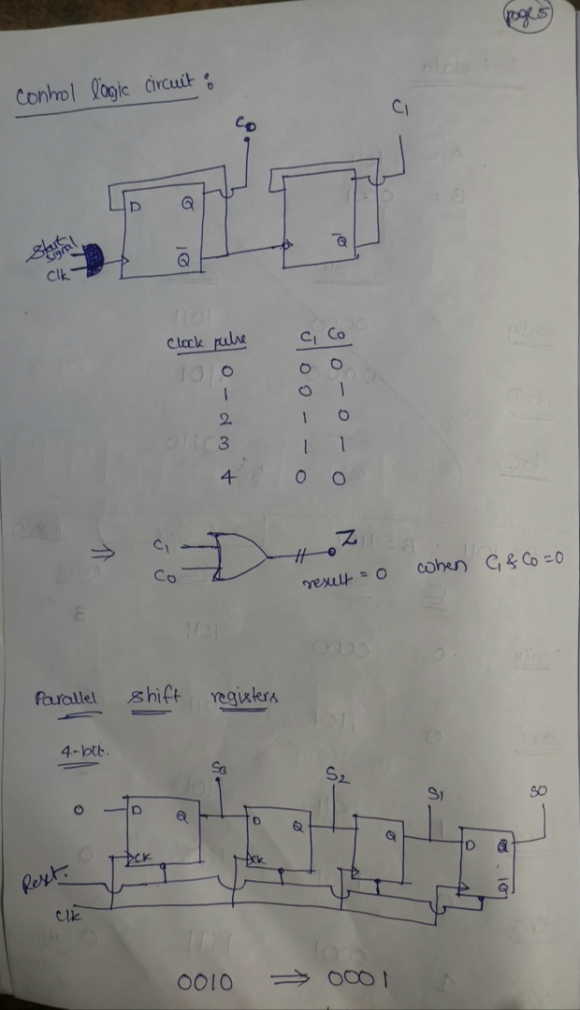 page 5
Control logic circuit :
C0
C1
D Q
Q̅
Q̅
Start signal
Clk
Clock pulse C1 C0
0 0 0
1 0 1
2 1 0
3 1 1
4 0 0
⇒ C1
C0
Z
result = 0 when C1 & C0 = 0
Parallel shift registers
4-bit.
S3 S2 S1 S0
0 D Q D Q Q D Q
CK CK Q̅
Reset.
Clk
0010 ⇒ 0001